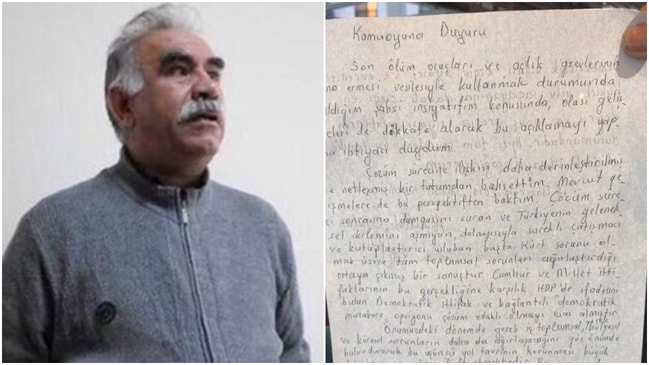 Kamuoyuna Duyuru
Son ölüm oruçları ve açlık grevlerinin
ermesi vesilesiyle kullanmak durumunda
şahsi insiyatifim konusunda, olası geliş
de dikkate alarak bu açıklamayı yap
ihtiyacı duydum.
Çözüm sürecine ilişkin daha derinleştirilmiş
netleşmiş bir tutumdan bahsettim. Mevcut ge
işmelere de bu perspektiften baktım. Çözüm süre
ci sonrasına damgasını vuran ve Türkiyenin gelenek
sel ikilemini aşmıyan, dolayısıyla sürekli çatışmacı
ve kutuplaştırıcı üslubun başta Kürt sorunu ol
mak üzere tüm toplumsal sorunları ağırlaştırdığı
ortaya çıkmış bir sonuçtur. Cumhur ve Millet itti
faklarının bu gerçekliğine karşılık HDP'de ifadesini
bulan Demokratik ittifak ve bağlantılı demokratik
müzakere, opsiyonu çözüm odaklı olmayı esas almıştır.
Önümüzdeki dönemde gerek iç toplumsal, bölgesel
ve küresel sorunların daha da ağırlaşacağını göz önünde
bulundurarak bu üçüncü yol tavrının korunması büyük